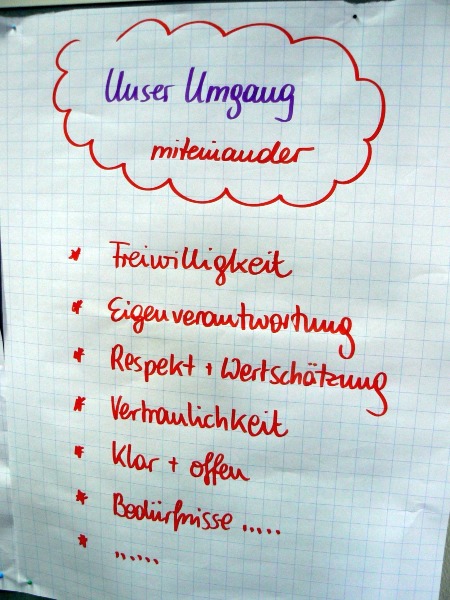 Unser Umgang
miteinander
* Freiwilligkeit
* Eigenverantwortung
* Respekt + Wertschätzung
* Vertraulichkeit
* Klar + offen
* Bedürfnisse .....
* ......